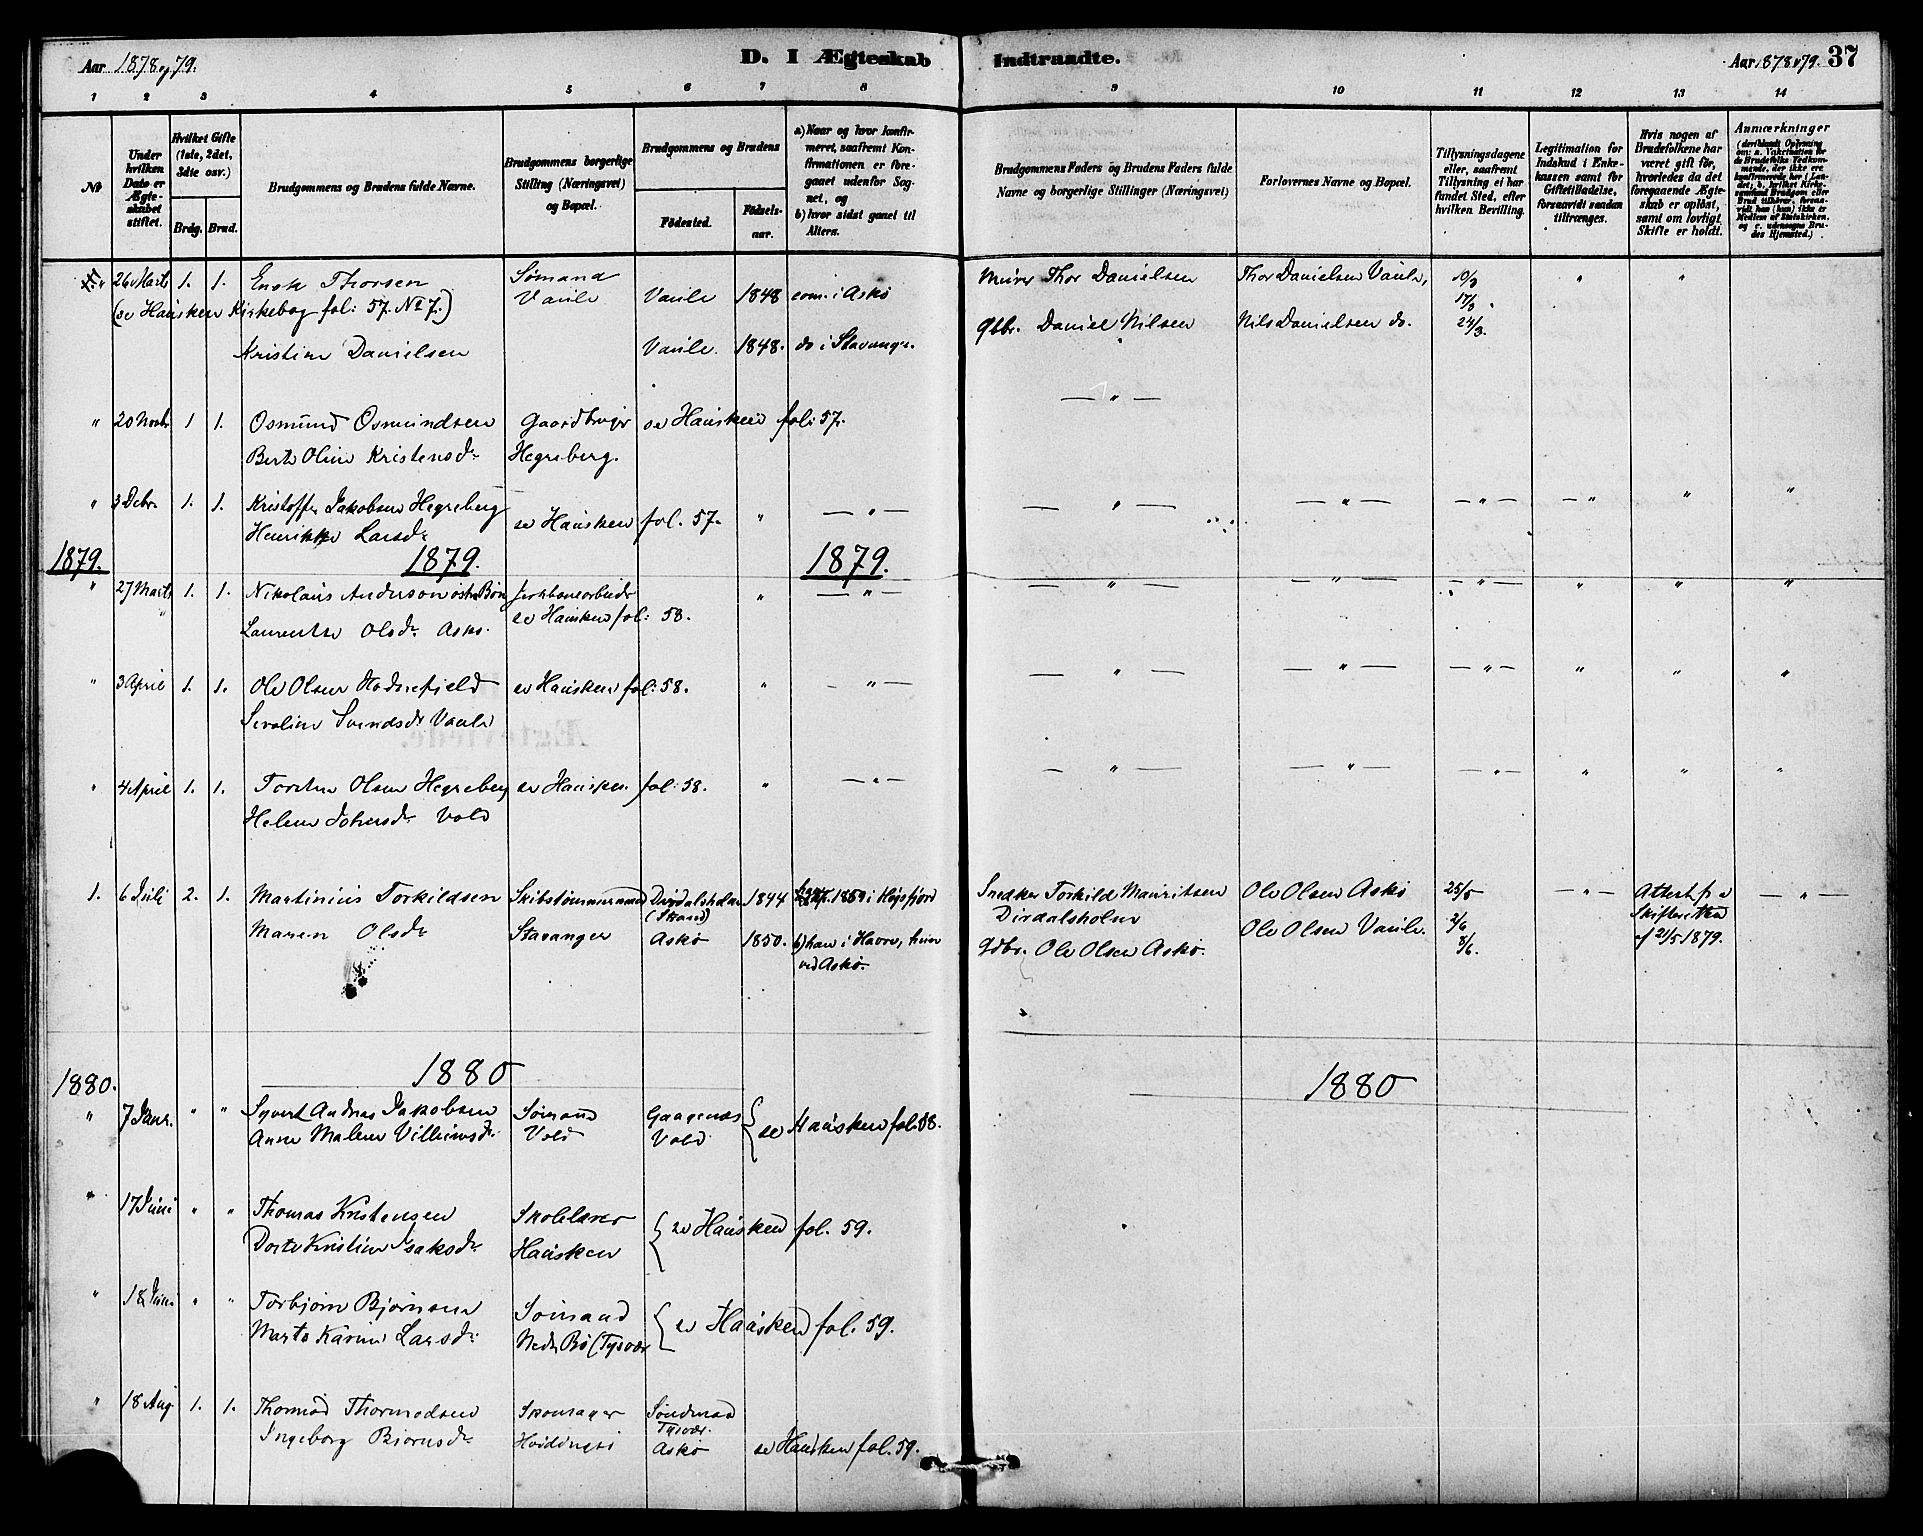 Aar 1878 og 79.
D. I Ægteskab
Indtraadte.
Aar 1878 & 79.
37
1 2 3 4 5 6 7 8 9 10 11 12 13 14
No.
Under hvilken Dato er Ægteskabet stiftet.
Hvilket Gifte (1ste, 2det, 3die osv.)
Brdg. Brud.
Brudgommens og Brudens fulde Navne.
Brudgommens borgerlige Stilling (Næringsvei) og Bopæl.
Brudgommens og Brudens
Fødested.
Fødselsaar.
a) Naar og hvor konfirmeret, saafremt Konfirmationen er foregaaet udenfor Sognet, og
b) hvor sidst gaaet til Alters.
Brudgommens Faders og Brudens Faders fulde Navne og borgerlige Stillinger (Næringsvei)
Forlovernes Navne og Bopæl.
Tillysningsdagene eller, saafremt Tillysning ei har fundet Sted, efter hvilken Bevilling.
Legitimation for Indskud i Enkekassen samt for Giftetilladelse, forsaavidt saadan tiltrænges.
Hvis nogen af Brudefolkene har været gift før, hvorledes da det foregaaende Ægteskab er opløst, samt om lovligt Skifte er holdt.
Anmærkninger
" 26 Marts 1. 1. Enok Thorsen Sømand Vaule Vaule 1848 com. i Askø Murer Thor Danielsen Thor Danielsen Vaule, 10/3 " "
(se Hausken Kirkebog fol: 57. No 7.) 17/3
Kristine Danielsen Vaule. 1848. do i Stavanger. Gbr. Daniel Nilsen Nils Danielsen do. 24/3.
" 20 Novbr 1 1. Osmund Osmundsen Gaardbruger se Hausken fol: 57. — " —
Berte Oline Kristensdr Hegreberg.
" 3 Debr. 1. 1. Kristoffer Jakobsen Hegreberg se Hausken fol. 57. " — " — — " — — " — — " — — " " "
Henrikke Larsdr
1879. 1879. 1879.
" 27 Marts 1. 1. Nikolaus Anderson østre Bøe Jernbanearbeider " — " — — " — — " — — " — " " "
Laurentse Olsdr Askø. se Hausken fol: 58.
" 3 April 1. 1. Ole Olsen se Hausken fol: 58. " — " — — " — — " — — " — " " "
Seraline Svendsdr Vaule
" 4 April 1. 1. Torsten Olsen Hegreberg se Hausken fol: 58. " — " — — " — — " — — " — " " "
Helene Johnsdr Vold
1. 6 Juli 2. 1. Martinius Torkildsen Skibstømmermand Dirdalsholm (Strand) 1844 1859 i Høgsfjord Snedker Torkild Mauritsen Dirdalsholm Ole Olsen Askø 25/5 — " — Attest fra Skifteretten af 21/5 1879. — " —
Maren Olsdr Stavanger Askø 1850. b) han i Havre, hun ved Askø. Gdbr. Ole Olsen Askø. Ole Olsen Vaule. 2/6 8/6.
1880. 1880 1880
" 7 Janr. " " Syvert Andreas Jakobsen Sømand Gaagenæs
Anne Malene Villiumsdr. Vold Vold se Hausken fol. 58.
" 17 Juni " " Thomas Kristensen Skolelærer
Dorte Kristine Isaksdr Hausken se Hausken fol. 59.
" 18 Juni " " Torbjørn Bjørnsen Sømand
Marte Karine Larsdr: Nedre Bø (Tysvær se Hausken fol. 59.
" 18 Aug 1. 1. Thormod Thormodsen Skomager Tysvær.
Ingeborg Bjørnsdr Hvidingsø Askø se Hausken fol. 59.